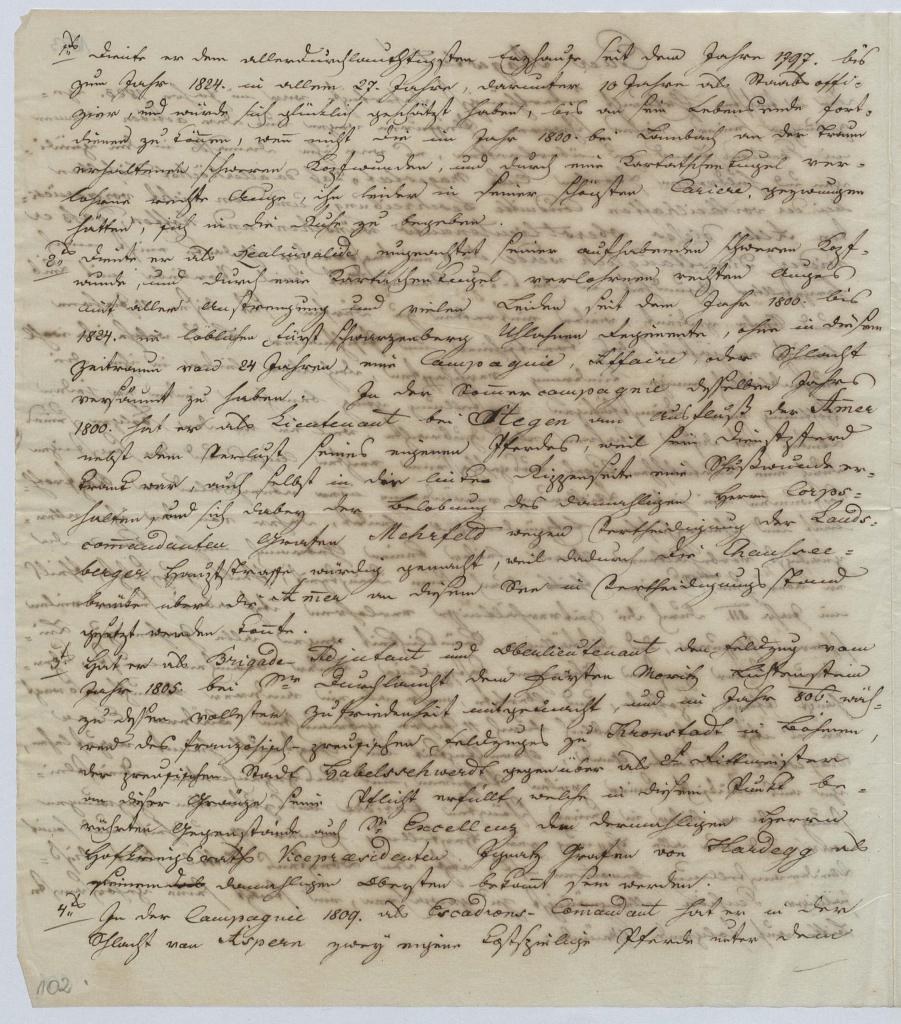 1tens diente er dem allerdurchlauchtigsten Erzhause seit dem Jahre 1797. bis
zum Jahr 1824. in allem 27. Jahre, darunter 10 Jahre als Staabsoffi-
zier, und würde sich glücklich geschätzt haben, bis an sein Lebensende fort-
dienen zu können, wenn nicht die im Jahr 1800. bei Lambach an der Traun
erhaltenen schweren Kopfwunden, und durch eine Kartätschenkugel ver-
lohrne rechte Auge, ihn leider in seiner schönsten Cariere, gezwungen
hätten, sich in die Ruhe zu begeben.
2tens Diente er als Realinvalide ungeachtet seiner aufhabenden schweren Kopf-
wunde, und durch eine Kartätschenkugel verlohrnen rechten Auges
mit aller Anstrengung und vielen Leiden seit dem Jahr 1800. bis
1824. im löblichen Fürst Schwarzenberg Uhlanen Regimente, ohne in diesem
Zeitraum von 24 Jahren eine Campagnie, Affaire, oder Schlacht
versäumt zu haben. In der Sommercampagnie desselben Jahrs
1800. hat er als Lieutenant bei Stegen am Ausfluß der Amer
nebst dem Verlust seines eigenen Pferdes, weil sein Dienstpferd
krank war, auch selbst in der linken Rippenseite eine Schußwunde er-
halten, und sich dabey der Belobung des damahligen Herrn Corps-
commandanten Grafen Mehrfeld wegen Vertheidigung der Lands-
berger Hauptstrasse, würdig gemacht, weil dadurch die Chaussee-
brücke über die Amer an diesem See in Vertheidigungsstand
gesetzt werden konnte.
3t Hat er als Brigade-Adjutant und Oberlieutenant den Feldzug vom
Jahr 1805. bei Sr Durchlaucht dem Fürsten Moritz Lichtenstein
zu dessen vollesten Zufriedenheit mitgemacht, und im Jahr 806. wäh-
rend des französisch-preußischen Feldzuges zu Kronstadt in Böhmen,
der preußischen Stadt Habelsschwerdt gegenüber als Rittmeister
an dieser Gränze seine Pflicht erfüllt, welche in diesem Punkt be-
rührten Gegenstände auch Sr Excellenz dem dermahligen Herrn
Hofkriegsraths Vicepraesidenten Ignatz Grafen von Hardegg als
damahligen Obersten bekannt sein werden.
4tens In der Campagnie 1809. als Escadrons-Commandant hat er in der
Schlacht von Aspern zwey eigene kostspielige Pferde unter dem
102